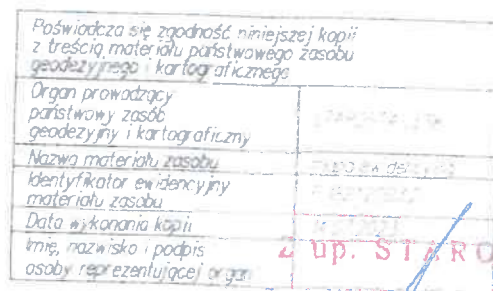 Poświadcza się zgodność niniejszej kopii
z treścią materiału państwowego zasobu
geodezyjnego i kartograficznego
Organ prowadzący
państwowy zasób
geodezyjny i kartograficzny
Nazwa materiału zasobu
Identyfikator ewidencyjny
materiału zasobu
Data wykonania kopii
Imię, nazwisko i podpis
osoby reprezentującej organ
Z up. STARO